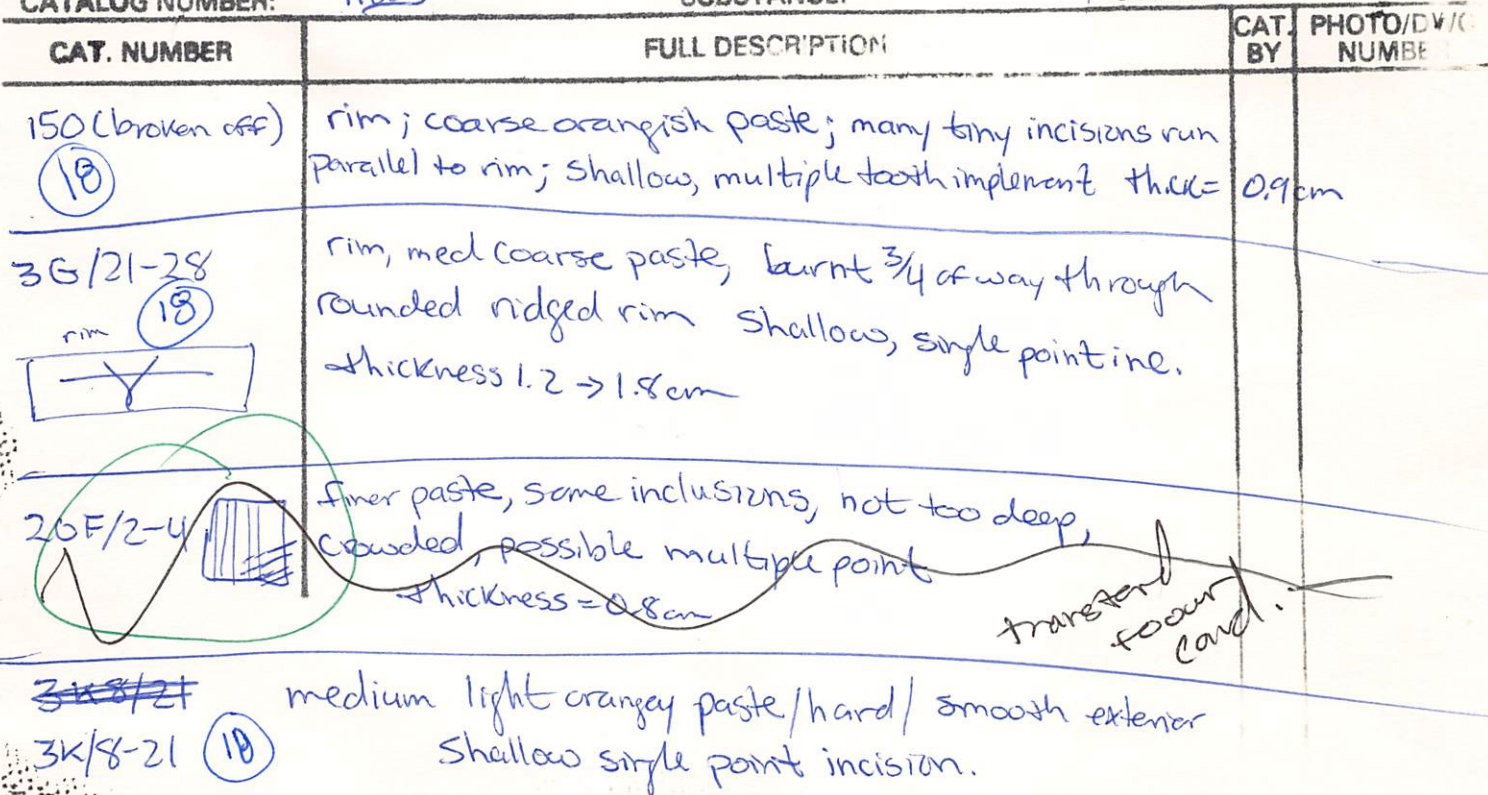 CATALOG NUMBER:
CAT. NUMBER FULL DESCRIPTION CAT. BY PHOTO/DV/ NUMBE
150 (broken off) rim; coarse orangish paste; many tiny incisions run
18 parallel to rim; shallow, multiple tooth implement thick= 0.9 cm
3G/21-28 rim, med coarse paste, burnt 3/4 of way through
18 rounded ridged rim shallow, single point inc.
rim thickness 1.2 → 1.8cm
20F/2-4 finer paste, some inclusions, not too deep,
crowded, possible multiple point
thickness = 0.8cm
card.
3K8/21 medium light orangey paste/hard/ smooth exterior
3K/8-21 18 Shallow single point incision.